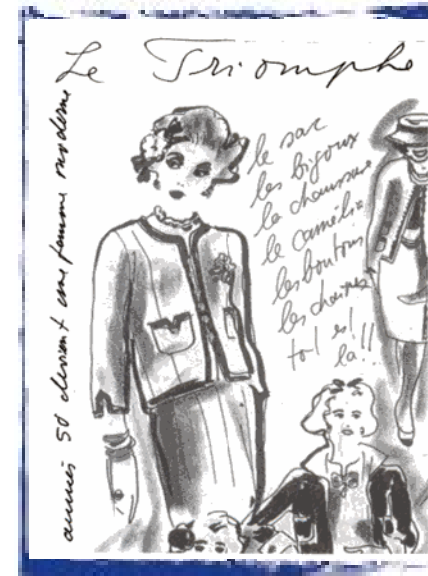 Le Triomphe
années 50 devient une femme moderne
le sac
les bijoux
la chaussure
le camélia
les boutons
les chaines
tout est
là!!